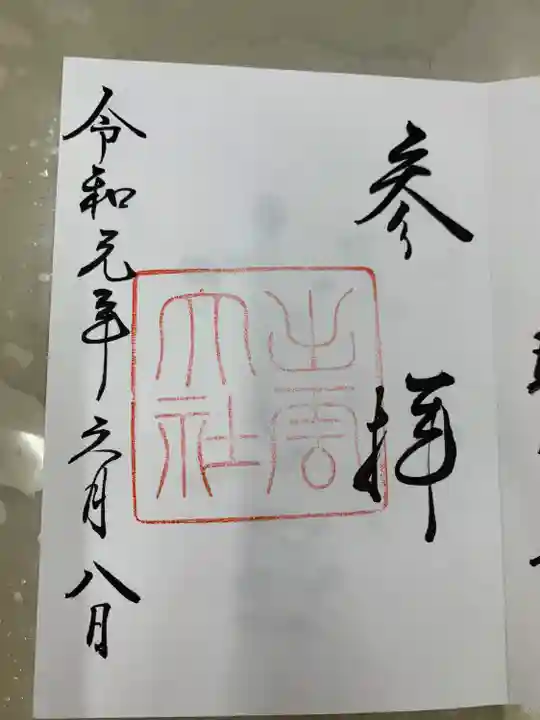 参拝
出雲
大社
令和元年六月八日